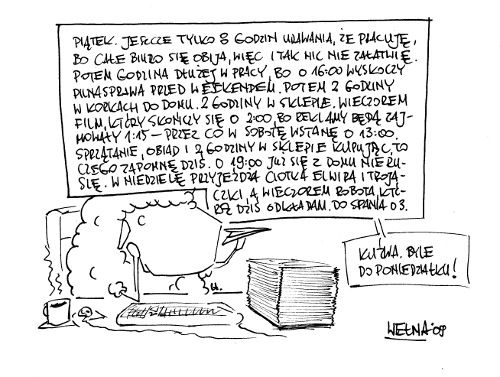 PIĄTEK. JESZCZE TYLKO 8 GODZIN UDAWANIA, ŻE PRACUJĘ,
BO CAŁE BIURO SIĘ OBIJA, WIĘC I TAK NIC NIE ZAŁATWIĘ.
POTEM GODZINA DŁUŻEJ W PRACY, BO O 16:00 WYSKOCZY
PILNA SPRAWA PRZED WEEKENDEM. POTEM 2 GODZINY
W KORKACH DO DOMU. 2 GODZINY W SKLEPIE. WIECZOREM
FILM, KTÓRY SKOŃCZY SIĘ O 2:00, BO REKLAMY BĘDĄ ZAJ-
MOWAŁY 1:15 – PRZEZ CO W SOBOTĘ WSTANĘ O 13:00.
SPRZĄTANIE, OBIAD I 2 GODZINY W SKLEPIE KUPUJĄC, TO
CZEGO ZAPOMNĘ DZIŚ. O 19:00 JUŻ SIĘ Z DOMU NIE RU-
SZĘ. W NIEDZIELĘ PRZYJEŻDŻA CIOTKA ELWIRA I TROJA-
CZKI, A WIECZOREM ROBOTA, KTÓ-
RĄ DZIŚ ODKŁADAM. DO SPANIA O 3.
KUŹWA. BYLE
DO PONIEDZIAŁKU!
WEŁNA '09